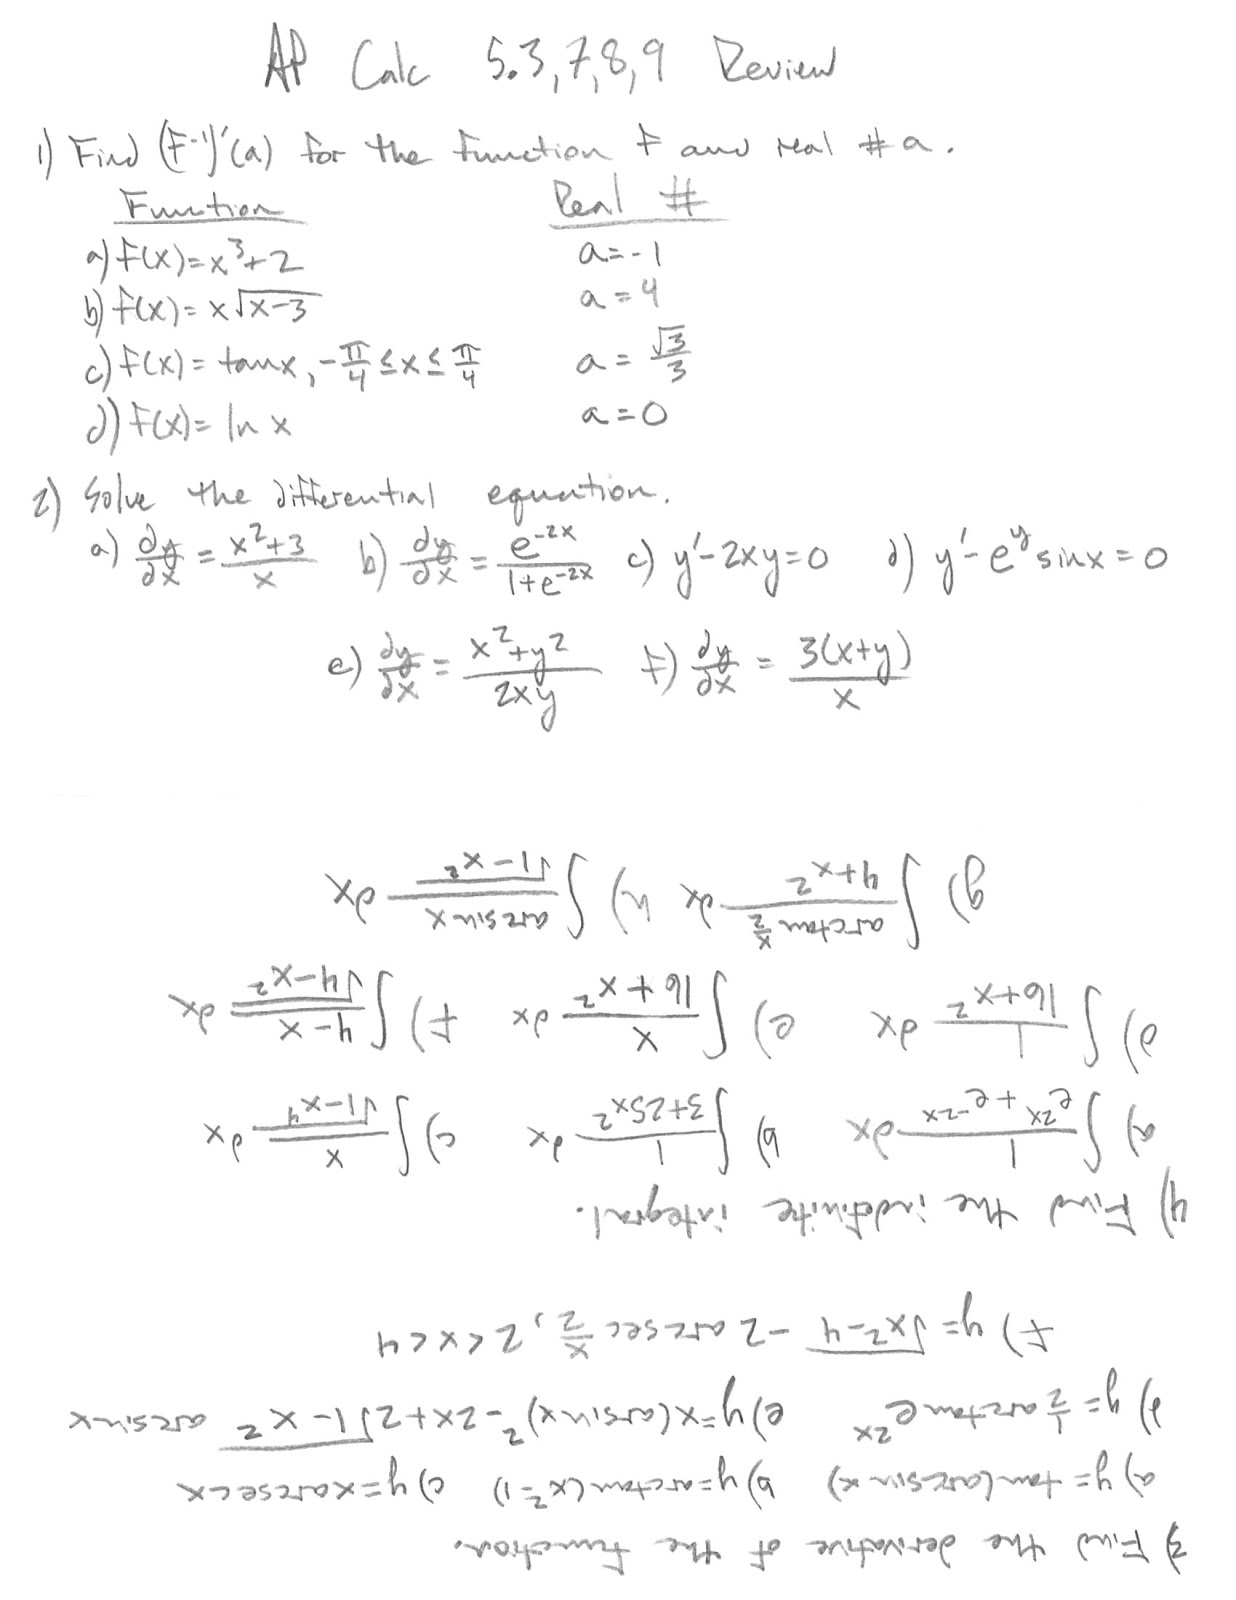 AP Calc 5.3,7,8,9 Review
1) Find (f⁻¹)'(a) for the function f and real # a.
Function Real #
a) f(x)=x³+2 a=-1
b) f(x)=x√(x-3) a=4
c) f(x)=tanx, -π/4≤x≤π/4 a=√3/3
d) f(x)=ln x a=0
2) Solve the differential equation.
a) dy/dx = (x²+3)/x b) dy/dx = e^(-2x)/(1+e^(-2x)) c) y'-2xy=0 d) y'-e^y sinx=0
e) dy/dx = (x²+y²)/(2xy) f) dy/dx = 3(x+y)/x
3) Find the derivative of the function.
a) y=tan(arcsin x) b) y=arctan(x²-1) c) y=xarcsecx
d) y=½arctan e^(2x) e) y=x(arsinx)²-2x+2√(1-x²) arcsinx
f) y=√(x²-4) -2 arcsec x/2, 2<x<4
4) Find the indefinite integral.
a) ∫1/(e^(2x)+e^(-2x)) dx b) ∫1/(3+25x²) dx c) ∫x/√(1-x⁴) dx
d) ∫1/(16+x²) dx e) ∫x/(16+x²) dx f) ∫(4-x)/√(4-x²) dx
g) ∫(arctan x/2)/(4+x²) dx h) ∫arcsinx/√(1-x²) dx